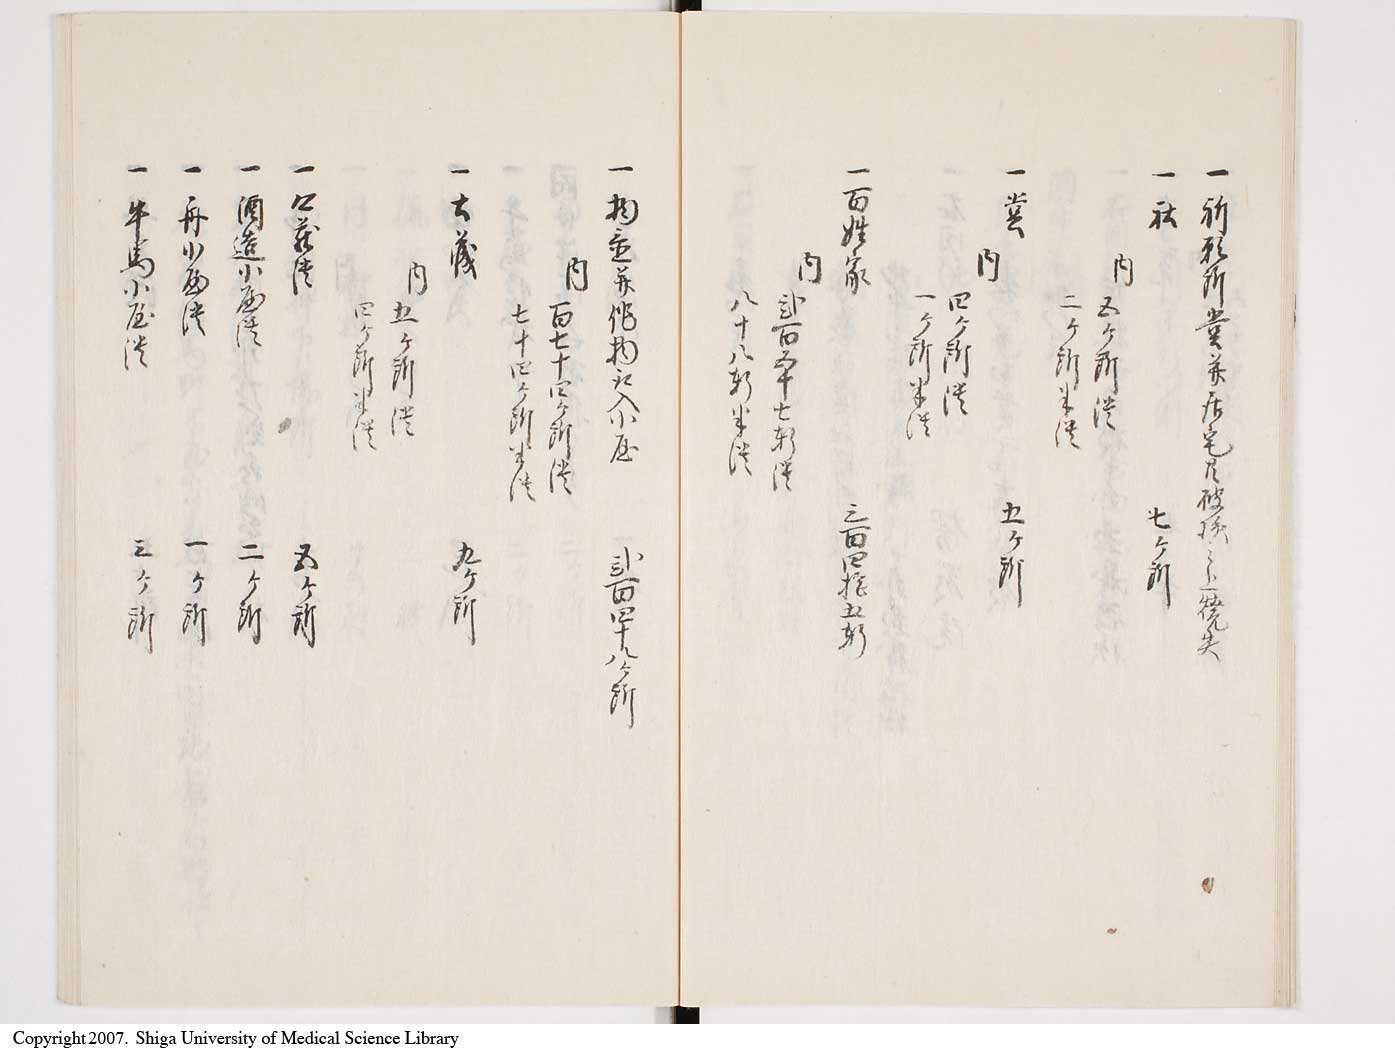 一祈願所堂并居宅共破損之上焼失
一社 七ケ所
内 五ケ所潰
二ケ所半潰
一堂 五ケ所
内 四ケ所潰
一ケ所半潰
一百姓家 三百四拾五軒
内 弐百五十七軒潰
八十八軒半潰
一物置并作物取入小屋 弐百四十八ケ所
内 百七十四ケ所潰
七十四ケ所半潰
一土蔵 九ケ所
内 五ケ所潰
四ケ所半潰
一口蔵潰 五ケ所
一酒造小屋潰 二ケ所
一舟小屋潰 一ケ所
一牛馬小屋潰 三ケ所
Copyright 2007. Shiga University of Medical Science Library